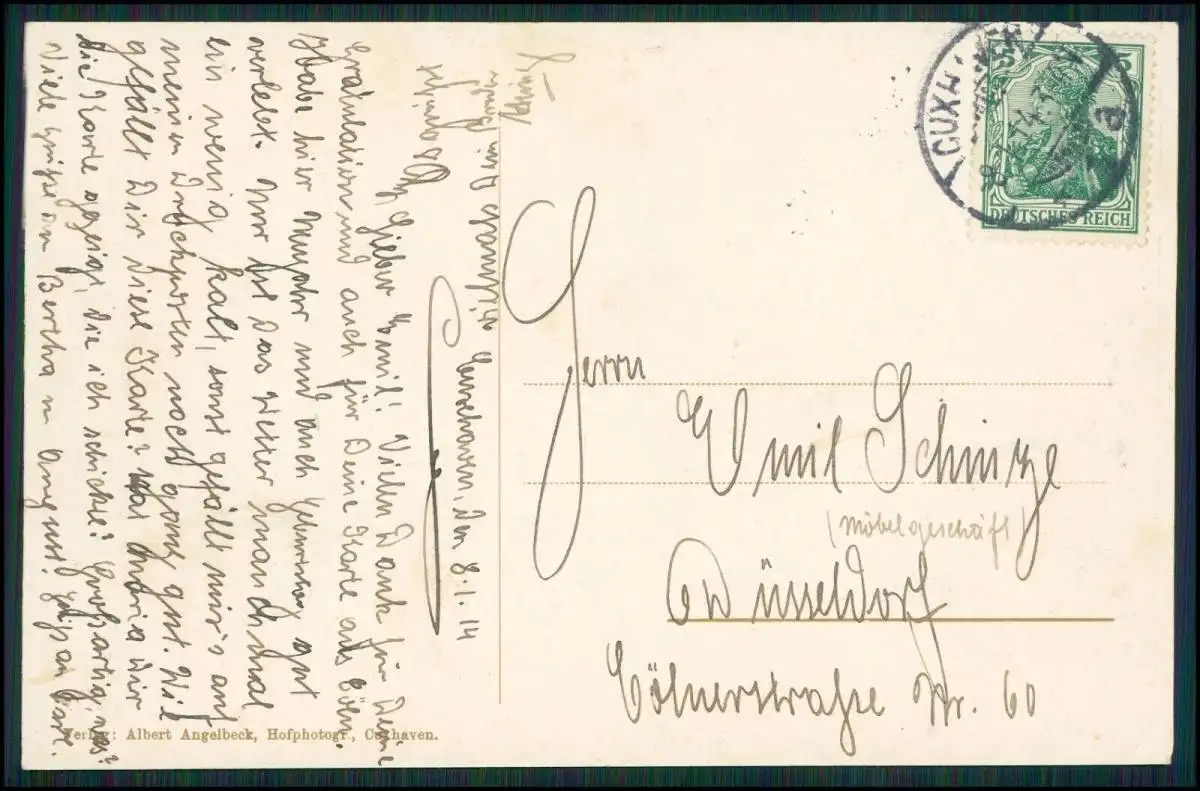 CUXHAVEN
8.1.14.
a
5 5
DEUTSCHES REICH
Cuxhaven, den 8.1.14
Lieber Emil! Vielen Dank für Deine
Gratulation und auch für Deine Karte aus Cöln.
Habe hier Neujahr und auch Geburtstag gut
verlebt. Nur ist das Wetter manchmal
ein wenig kalt, sonst gefällt mir's auf
meinem noch ganz gut. Wie
gefällt Dir diese Karte? Hat Maria Dir
die Karte gezeigt, die ich schickte? Großartig, was?
Viele Grüße an Bertha u August!
Es grüßt Dich
Herrn
Emil Schinze
(Möbelgeschäft)
Düsseldorf
Cölnerstraße Nr. 60
Verlag: Albert Angelbeck, Hofphotogr., Cuxhaven.